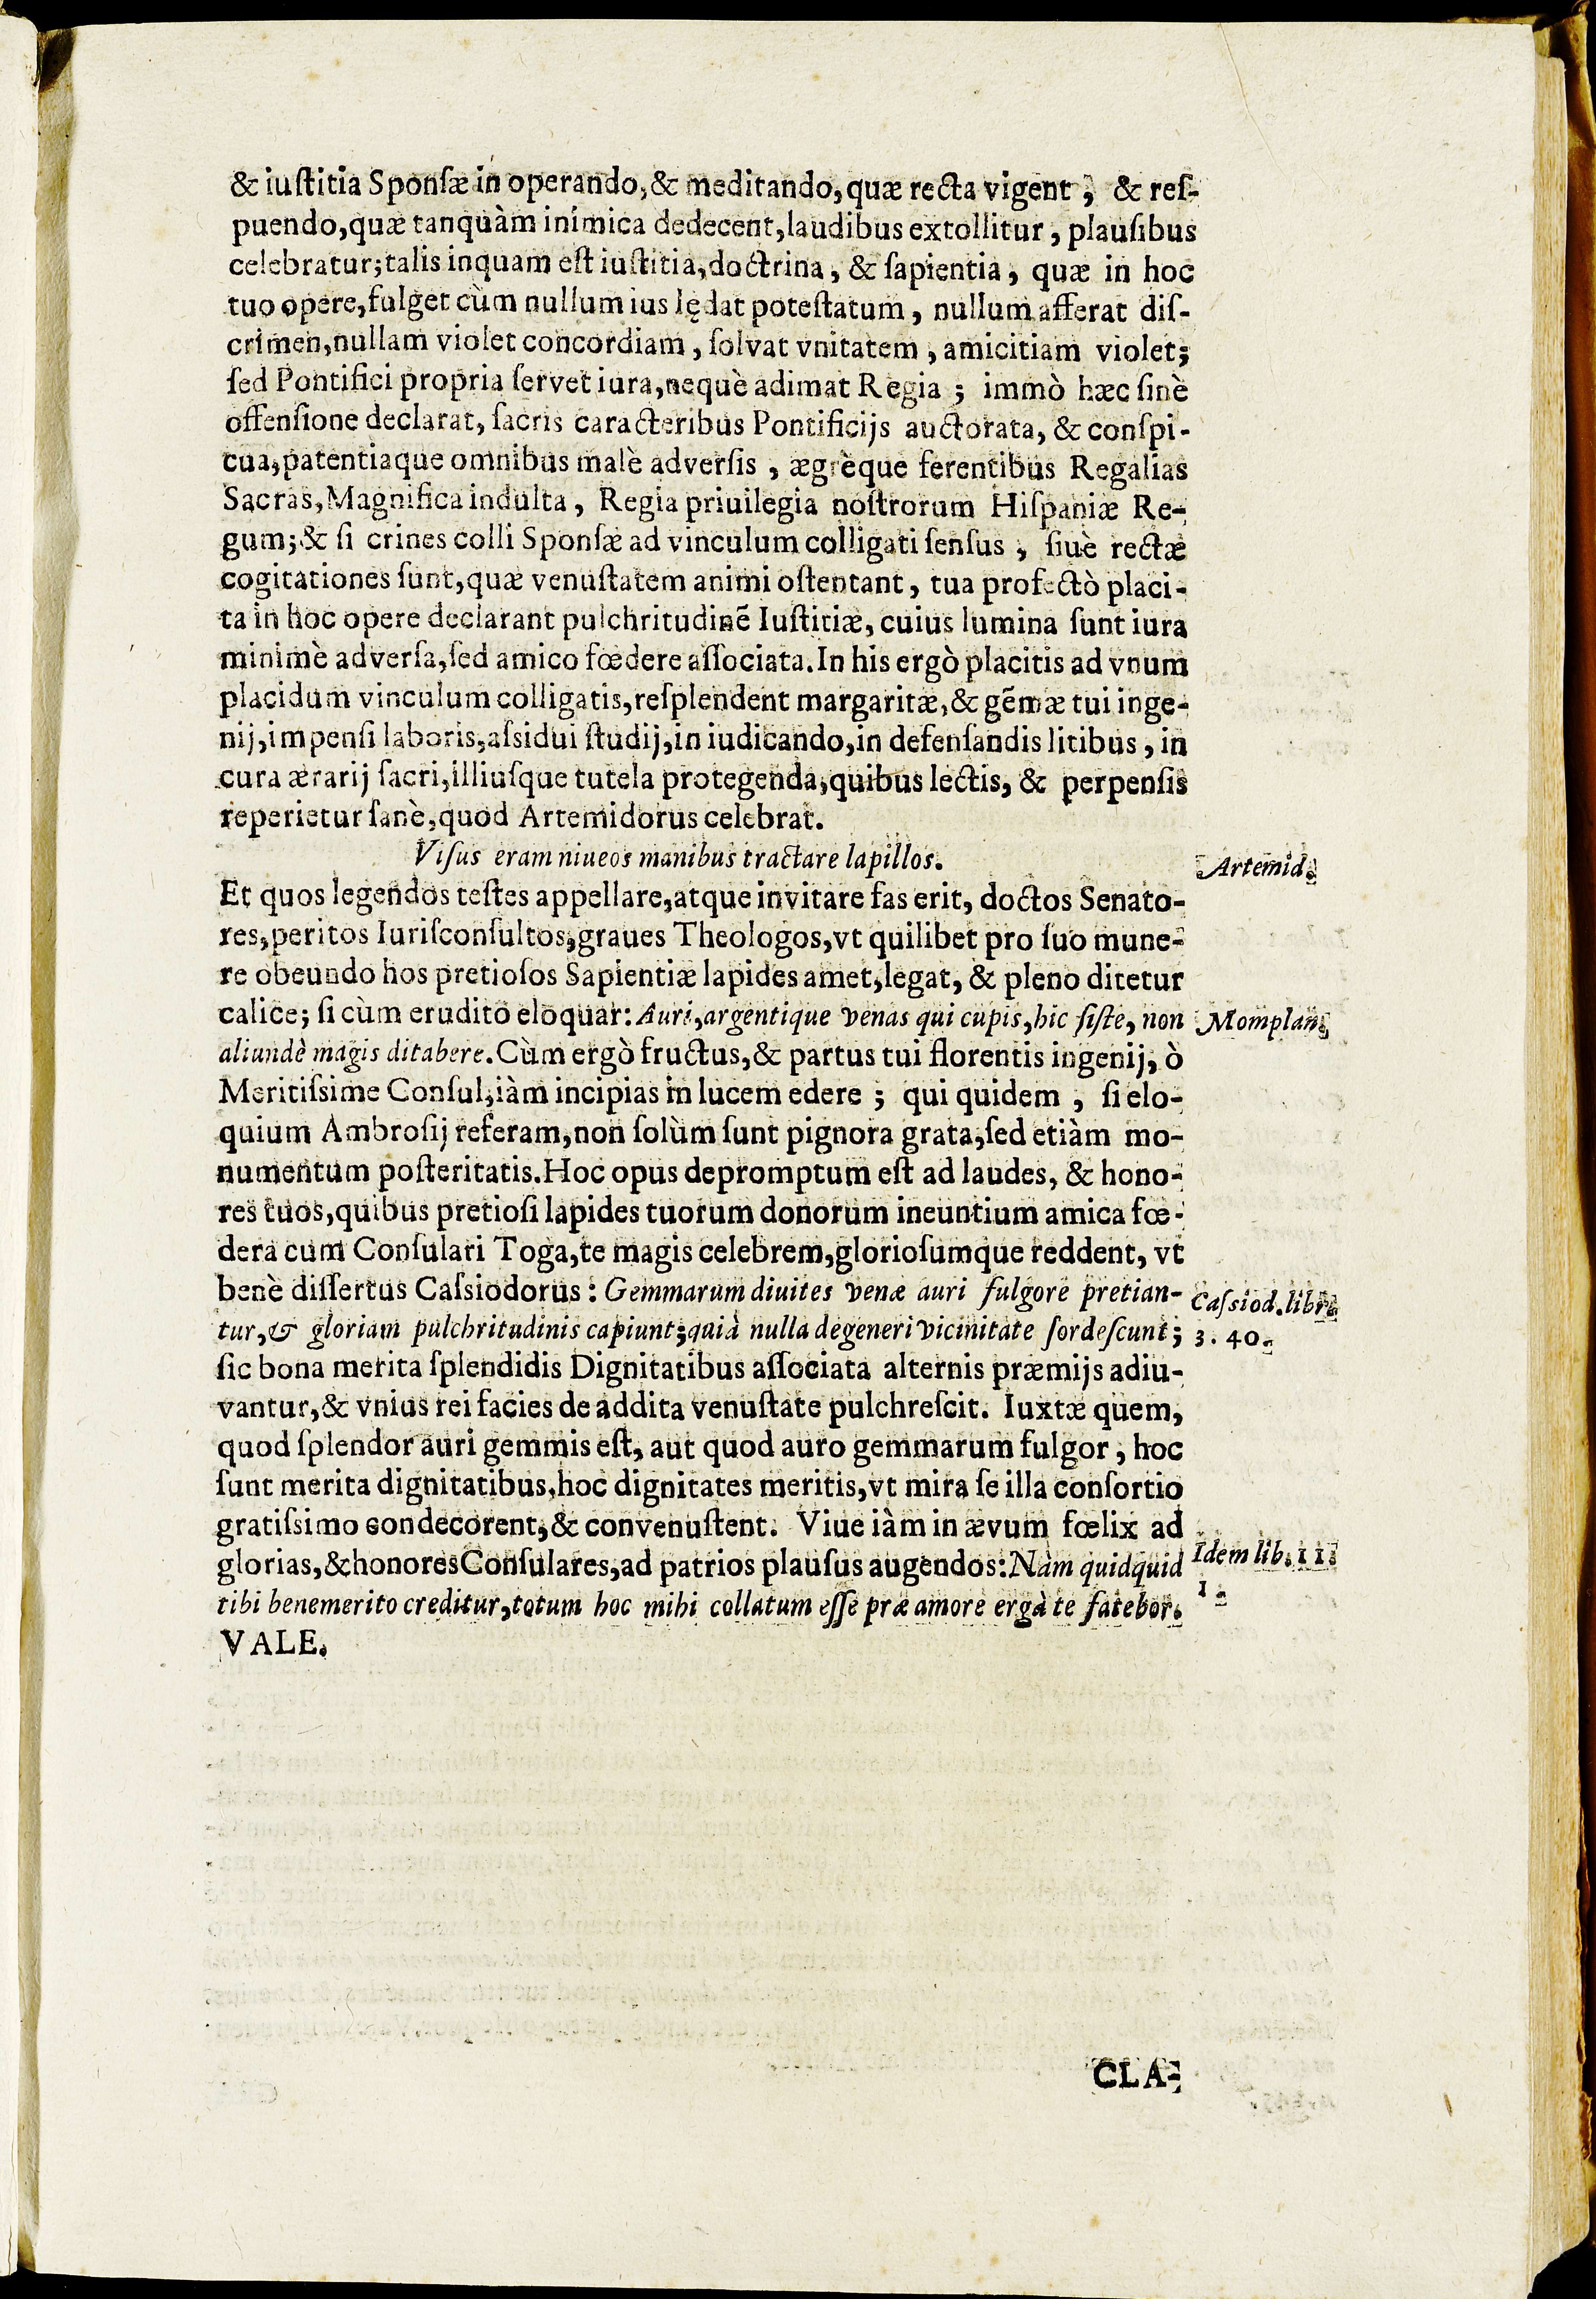 & iuſtitia Sponſæ in operando, & meditando, quæ recta vigent, & reſ-
puendo, quæ tanquàm inimica dedecent, laudibus extollitur, plauſibus
celebratur; talis inquam eſt iuſtitia, doctrina, & ſapientia, quæ in hoc
tuo opere, fulget cùm nullum ius lędat poteſtatum, nullum afferat diſ-
crimen, nullam violet concordiam, ſolvat vnitatem, amicitiam violet;
ſed Pontifici propria ſervet iura, nequè adimat Regia; immò hæc ſinè
offenſione declarat, ſacris caracteribus Pontificijs auctorata, & conſpi-
cua, patentiaque omnibus malè adverſis, ægrèque ferentibus Regalias
Sacras, Magnifica indulta, Regia priuilegia noſtrorum Hiſpaniæ Re-
gum; & ſi crines colli Sponſæ ad vinculum colligati ſenſus, ſiuè rectæ
cogitationes ſunt, quæ venuſtatem animi oſtentant, tua profectò placi-
ta in hoc opere declarant pulchritudinẽ Iuſtitiæ, cuius lumina ſunt iura
minimè adverſa, ſed amico fœdere aſſociata. In his ergò placitis ad vnum
placidum vinculum colligatis, reſplendent margaritæ, & gẽmæ tui inge-
nij, impenſi laboris, aſsidui ſtudij, in iudicando, in defenſandis litibus, in
cura ærarij ſacri, illiuſque tutela protegenda, quibus lectis, & perpenſis
reperietur ſanè, quod Artemidorus celebrat.
Viſus eram niueos manibus tractare lapillos.
Artemid.
Et quos legendos teſtes appellare, atque invitare fas erit, doctos Senato-
res, peritos Iuriſconſultos, graues Theologos, vt quilibet pro ſuo mune-
re obeundo hos pretioſos Sapientiæ lapides amet, legat, & pleno ditetur
calice; ſi cùm erudito eloquar: Auri, argentique venas qui cupis, hic ſiſte, non
Momplan.
aliundè magis ditabere. Cùm ergò fructus, & partus tui florentis ingenij, ò
Meritiſsime Conſul, iàm incipias in lucem edere; qui quidem, ſi elo-
quium Ambroſij referam, non ſolùm ſunt pignora grata, ſed etiàm mo-
numentum poſteritatis. Hoc opus depromptum eſt ad laudes, & hono-
res tuos, quibus pretioſi lapides tuorum donorum ineuntium amica fœ-
dera cum Conſulari Toga, te magis celebrem, glorioſumque reddent, vt
benè diſſertus Caſsiodorus: Gemmarum diuites venæ auri fulgore pretian-
Caſsiod. libr.
tur, & gloriam pulchritudinis capiunt; quià nulla degeneri vicinitate ſordeſcunt;
3. 40.
ſic bona merita ſplendidis Dignitatibus aſſociata alternis præmijs adiu-
vantur, & vnius rei facies de addita venuſtate pulchreſcit. Iuxtæ quem,
quod ſplendor auri gemmis eſt, aut quod auro gemmarum fulgor, hoc
ſunt merita dignitatibus, hoc dignitates meritis, vt mira ſe illa conſortio
gratiſsimo condecorent, & convenuſtent. Viue iàm in ævum fœlix ad
glorias, & honores Conſulares, ad patrios plauſus augendos: Nàm quidquid
Idem lib. 11.
tibi benemerito creditur, totum hoc mihi collatum eſſe præ amore ergà te fatebor.
1.
VALE.
CLA-